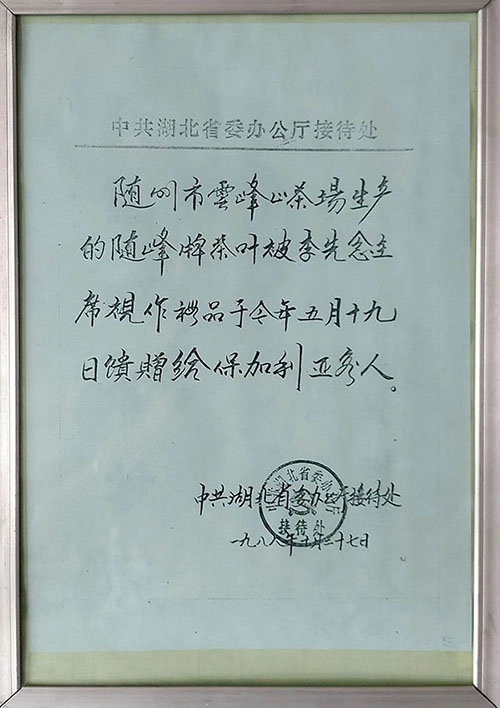 中共湖北省委办公厅接待处
随州市雲峰山茶場生产
的随峰牌茶叶被李先念主
席視作礼品于今年五月十九
日馈贈给保加利亚客人。
中共湖北省委办公厅接待处
中共湖北省委办公厅
接待处
一九八八年十月二十七日